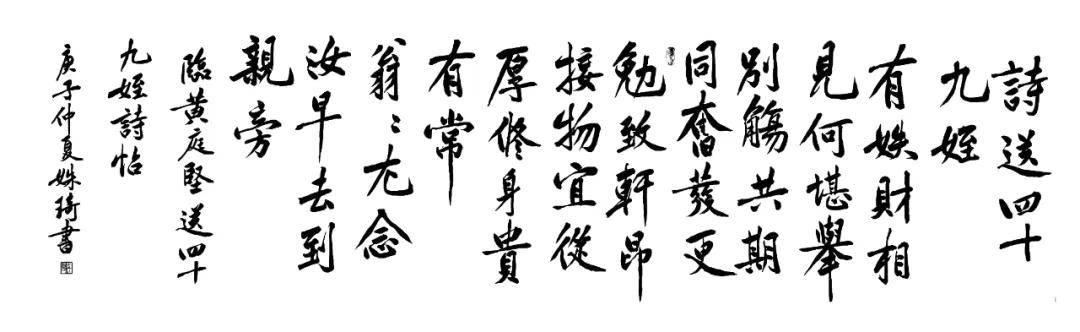 詩送四十
九姪
有妷財相
見何堪舉
別觴共期
同奮發更
勉致軒昂
接物宜從
厚修身貴
有常
翁〻尤念
汝早去到
親旁
臨黃庭堅送四十
九姪詩帖
庚子仲夏姝琦書